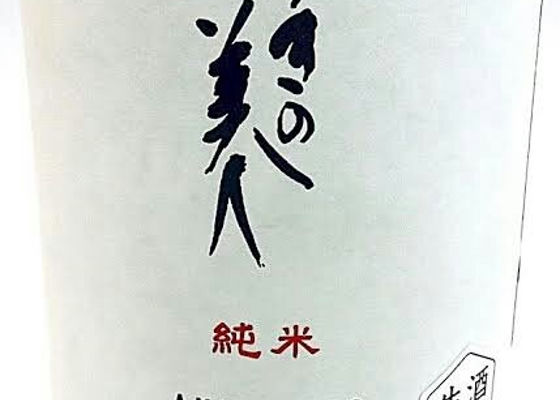 きの
美人
純米
生酒